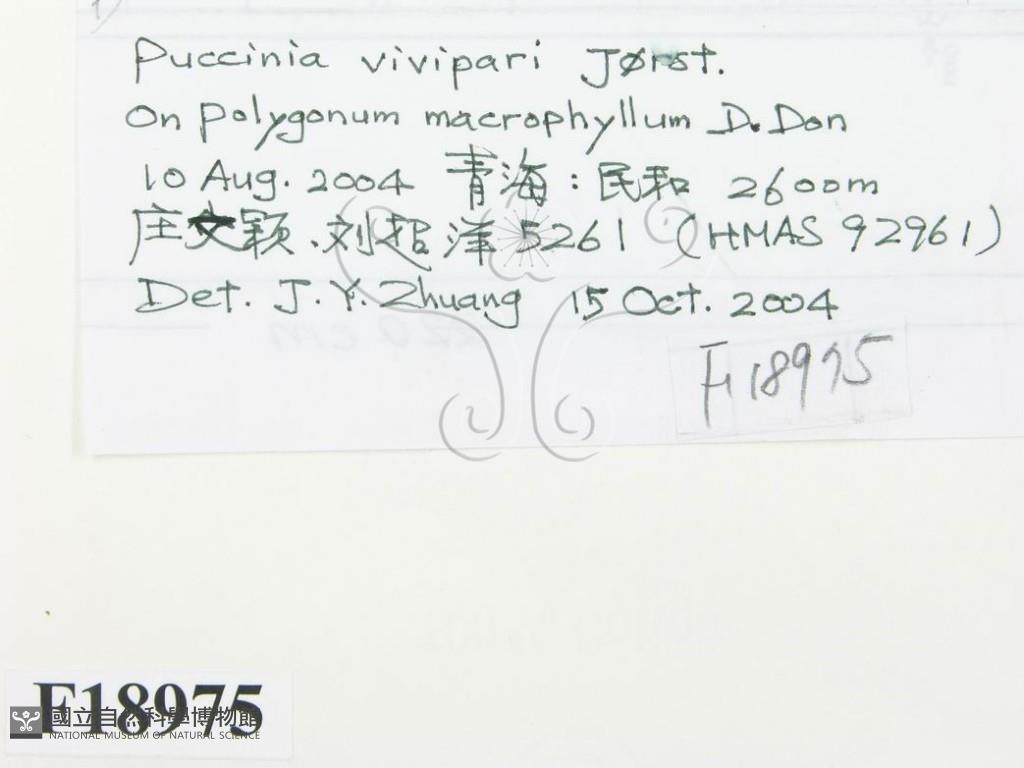 Puccinia vivipari Jørst.
On Polygonum macrophyllum D. Don
10 Aug. 2004 青海:民和 2600m
庄文颖、刘超洋 5261 (HMAS 92961)
Det. J. Y. Zhuang 15 Oct. 2004
F18975
F18975
國立自然科學博物館
NATIONAL MUSEUM OF NATURAL SCIENCE